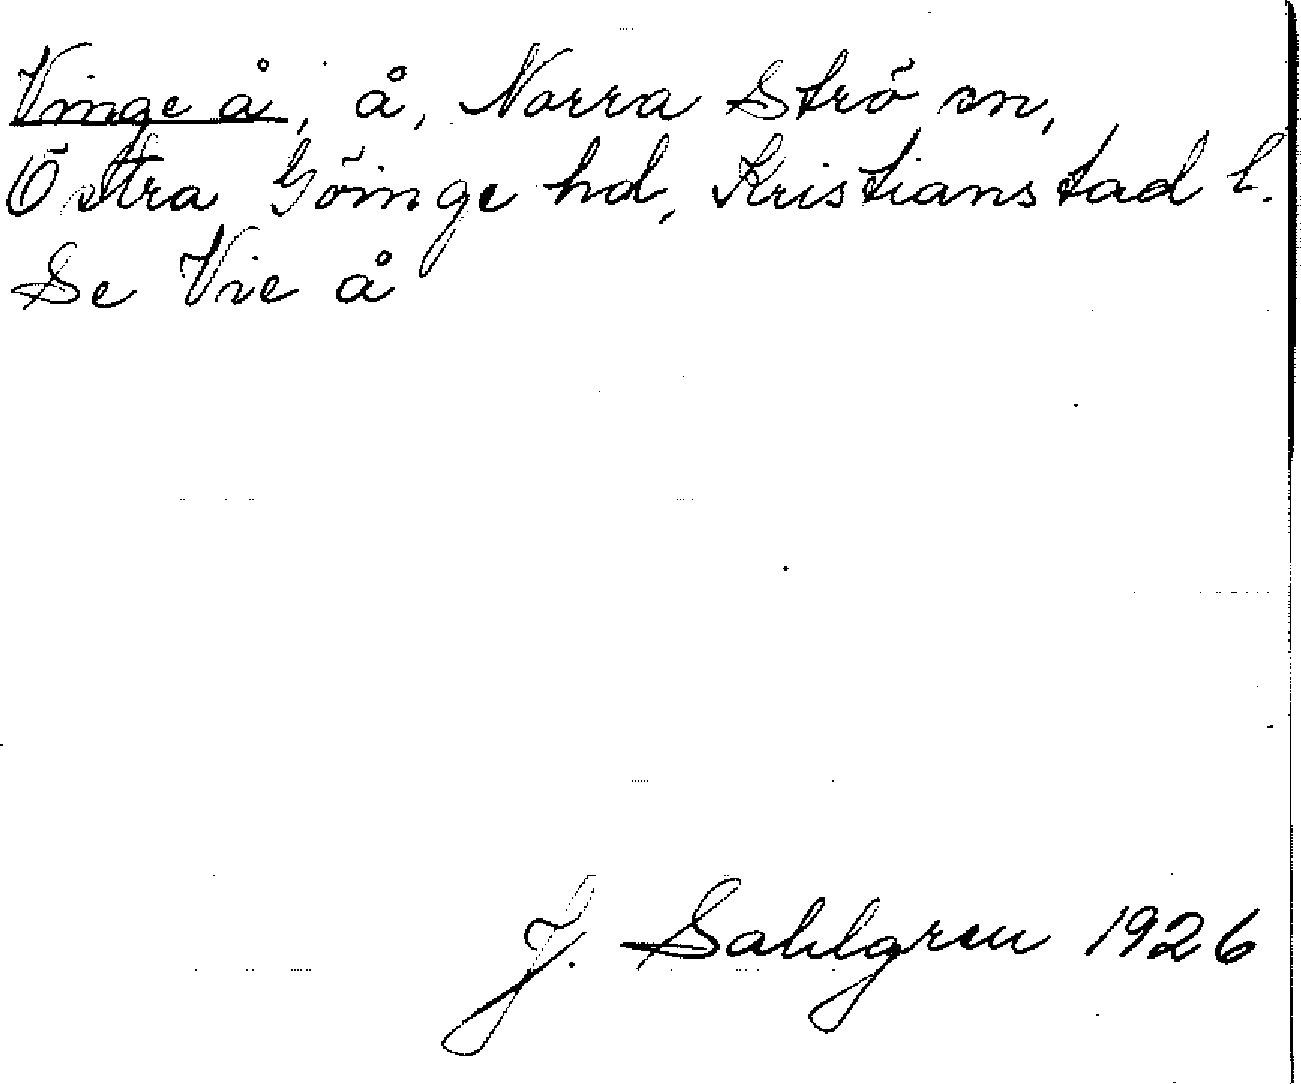 Vinge å, å, Norra Strö sn,
Östra Göinge hd, Kristianstad l.
Se Vie å
J. Sahlgren 1926